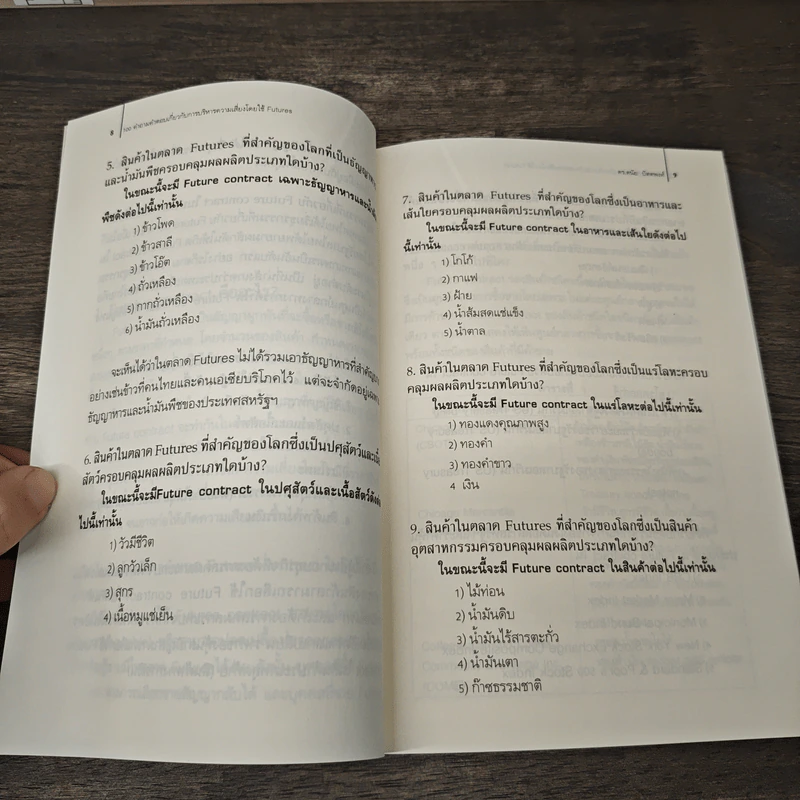 8 100 คำถามคำตอบเกี่ยวกับการบริหารความเสี่ยงโดยใช้ Futures
5. สินค้าในตลาด Futures ที่สำคัญของโลกที่เป็นธัญญาหาร
และน้ำมันพืชครอบคลุมผลผลิตประเภทใดบ้าง?
ในขณะนี้จะมี Future contract เฉพาะธัญญาหารและน้ำมัน
พืชดังต่อไปนี้เท่านั้น
1) ข้าวโพด
2) ข้าวสาลี
3) ข้าวโอ๊ต
4) ถั่วเหลือง
5) กากถั่วเหลือง
6) น้ำมันถั่วเหลือง
จะเห็นได้ว่าในตลาด Futures ไม่ได้รวมเอาธัญญาหารที่สำคัญ
อย่างเช่นข้าวที่คนไทยและคนเอเซียบริโภคไว้ แต่จะจำกัดอยู่เฉพาะ
ธัญญาหารและน้ำมันพืชของประเทศสหรัฐฯ
6. สินค้าในตลาด Futures ที่สำคัญของโลกซึ่งเป็นปศุสัตว์และเนื้อ
สัตว์ครอบคลุมผลผลิตประเภทใดบ้าง?
ในขณะนี้จะมีFuture contract ในปศุสัตว์และเนื้อสัตว์ดังต่อ
ไปนี้เท่านั้น
1) วัวมีชีวิต
2) ลูกวัวเล็ก
3) สุกร
4) เนื้อหมูแช่เย็น
9
7. สินค้าในตลาด Futures ที่สำคัญของโลกซึ่งเป็นอาหารและ
เส้นใยครอบคลุมผลผลิตประเภทใดบ้าง?
ในขณะนี้จะมี Future contract ในอาหารและเส้นใยดังต่อไป
นี้เท่านั้น
1) โกโก้
2) กาแฟ
3) ฝ้าย
4) น้ำส้มสดแช่แข็ง
5) น้ำตาล
8. สินค้าในตลาด Futures ที่สำคัญของโลกซึ่งเป็นแร่โลหะครอบ
คลุมผลผลิตประเภทใดบ้าง?
ในขณะนี้จะมี Future contract ในแร่โลหะต่อไปนี้เท่านั้น
1) ทองแดงคุณภาพสูง
2) ทองคำ
3) ทองคำขาว
4 เงิน
9. สินค้าในตลาด Futures ที่สำคัญของโลกซึ่งเป็นสินค้า
อุตสาหกรรมครอบคลุมผลผลิตประเภทใดบ้าง?
ในขณะนี้จะมี Future contract ในสินค้าต่อไปนี้เท่านั้น
1) ไม้ท่อน
2) น้ำมันดิบ
3) น้ำมันไร้สารตะกั่ว
4) น้ำมันเตา
5) ก๊าซธรรมชาติ